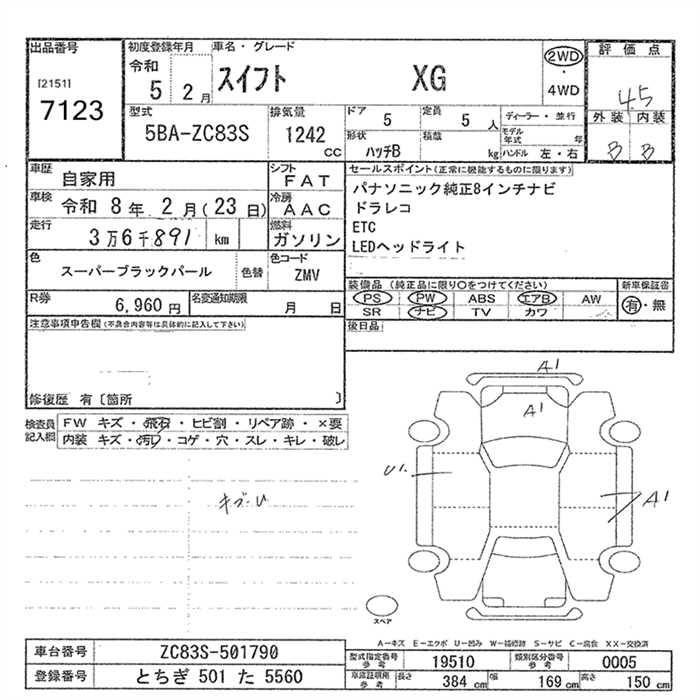 出品番号
[2151]
7123
初度登録年月
令和
5 2月
車名・グレード
スイフト XG
2WD
・
4WD
評価点
4.5
外装 内装
B B
型式
5BA-ZC83S
排気量
1242
CC
ドア
5
定員
5 人
形状
ハッチB
積載
kg
ディーラー・並行
モデル年式 年
ハンドル 左・右
車歴
自家用
シフト
FAT
車検
令和 8年 2月(23日)
冷房
AAC
走行
3万6千891 km
燃料
ガソリン
色
スーパーブラックパール
色替
色コード
ZMV
セールスポイント(正常に機能するものに限り)
パナソニック純正8インチナビ
ドラレコ
ETC
LEDヘッドライト
R券
6,960 円
名変通知期限
月 日
装備品(純正品に限り○をつけてください)
PS PW ABS エアB AW
SR ナビ TV カワ
新車保証書
有・無
後日品
注意事項申告欄(不具合内容等は具体的に記入して下さい)
修復歴 有〔箇所 〕
検査員記入欄
FW キズ・飛石・ヒビ割・リペア跡・×要
内装 キズ・汚れ・コゲ・穴・スレ・キレ・破レ
キズ・U
A1
A1
U1
A1
スペア
A－キズ E－エクボ U－凹み W－補修跡 S－サビ C－腐食 XX－交換済
車台番号
ZC83S-501790
登録番号
とちぎ 501 た 5560
型式指定番号
参考
19510
類別区分番号
参考
0005
車庫証明用
参考
長さ
384 cm
幅
169 cm
高さ
150 cm